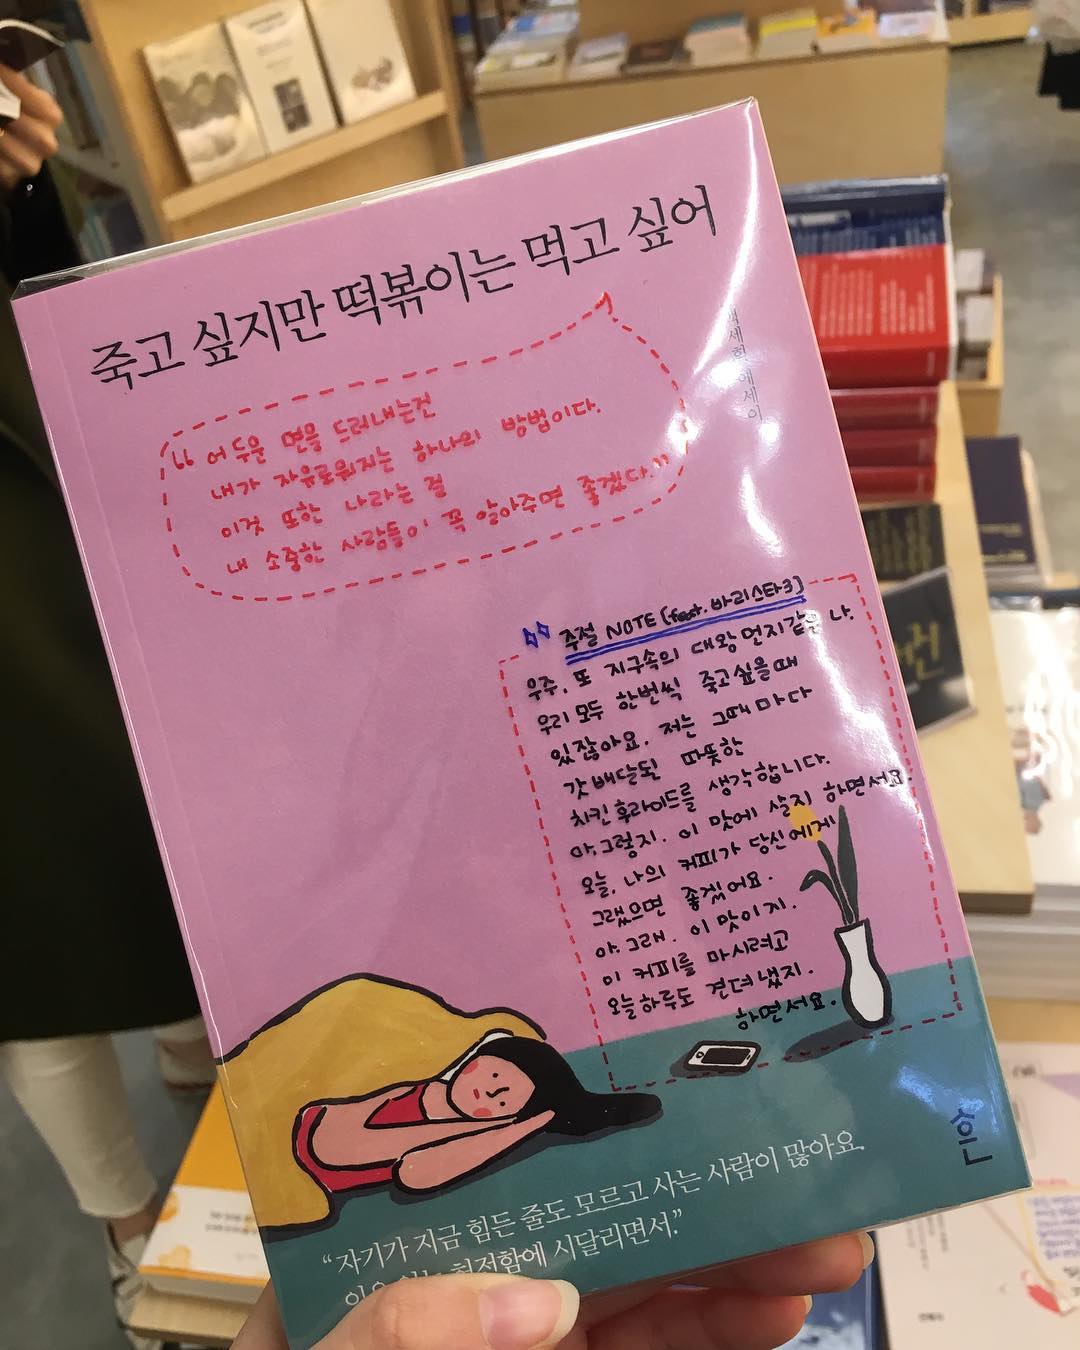 죽고 싶지만 떡볶이는 먹고 싶어
백세희 에세이
“ 어두운 면을 드러내는건
내가 자유로워지는 하나의 방법이다.
이것 또한 나라는 걸
내 소중한 사람들이 꼭 알아주면 좋겠다.”
주절 NOTE (feat. 바리스타3)
우주, 또 지구속의 대왕먼지같은 나.
우리 모두 한번씩 죽고싶을때
있잖아요. 저는 그때마다
갓 배달된 따뜻한
치킨 후라이드를 생각합니다.
아, 그렇지. 이 맛에 살지 하면서요.
오늘, 나의 커피가 당신에게
그랬으면 좋겠어요.
아. 그래. 이 맛이지.
이 커피를 마시려고
오늘하루도 견뎌냈지.
하면서요.
흔
“자기가 지금 힘든 줄도 모르고 사는 사람이 많아요.
허전함에 시달리면서.”